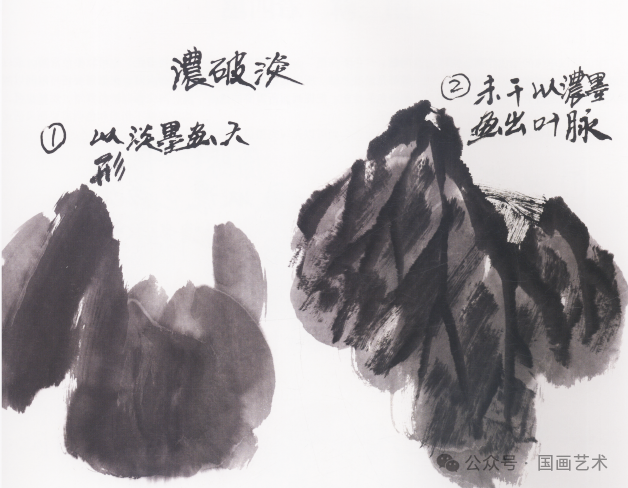 濃破淡
① 以淡墨画大
形
② 未干以濃墨
画出叶脉
公众号·国画艺术